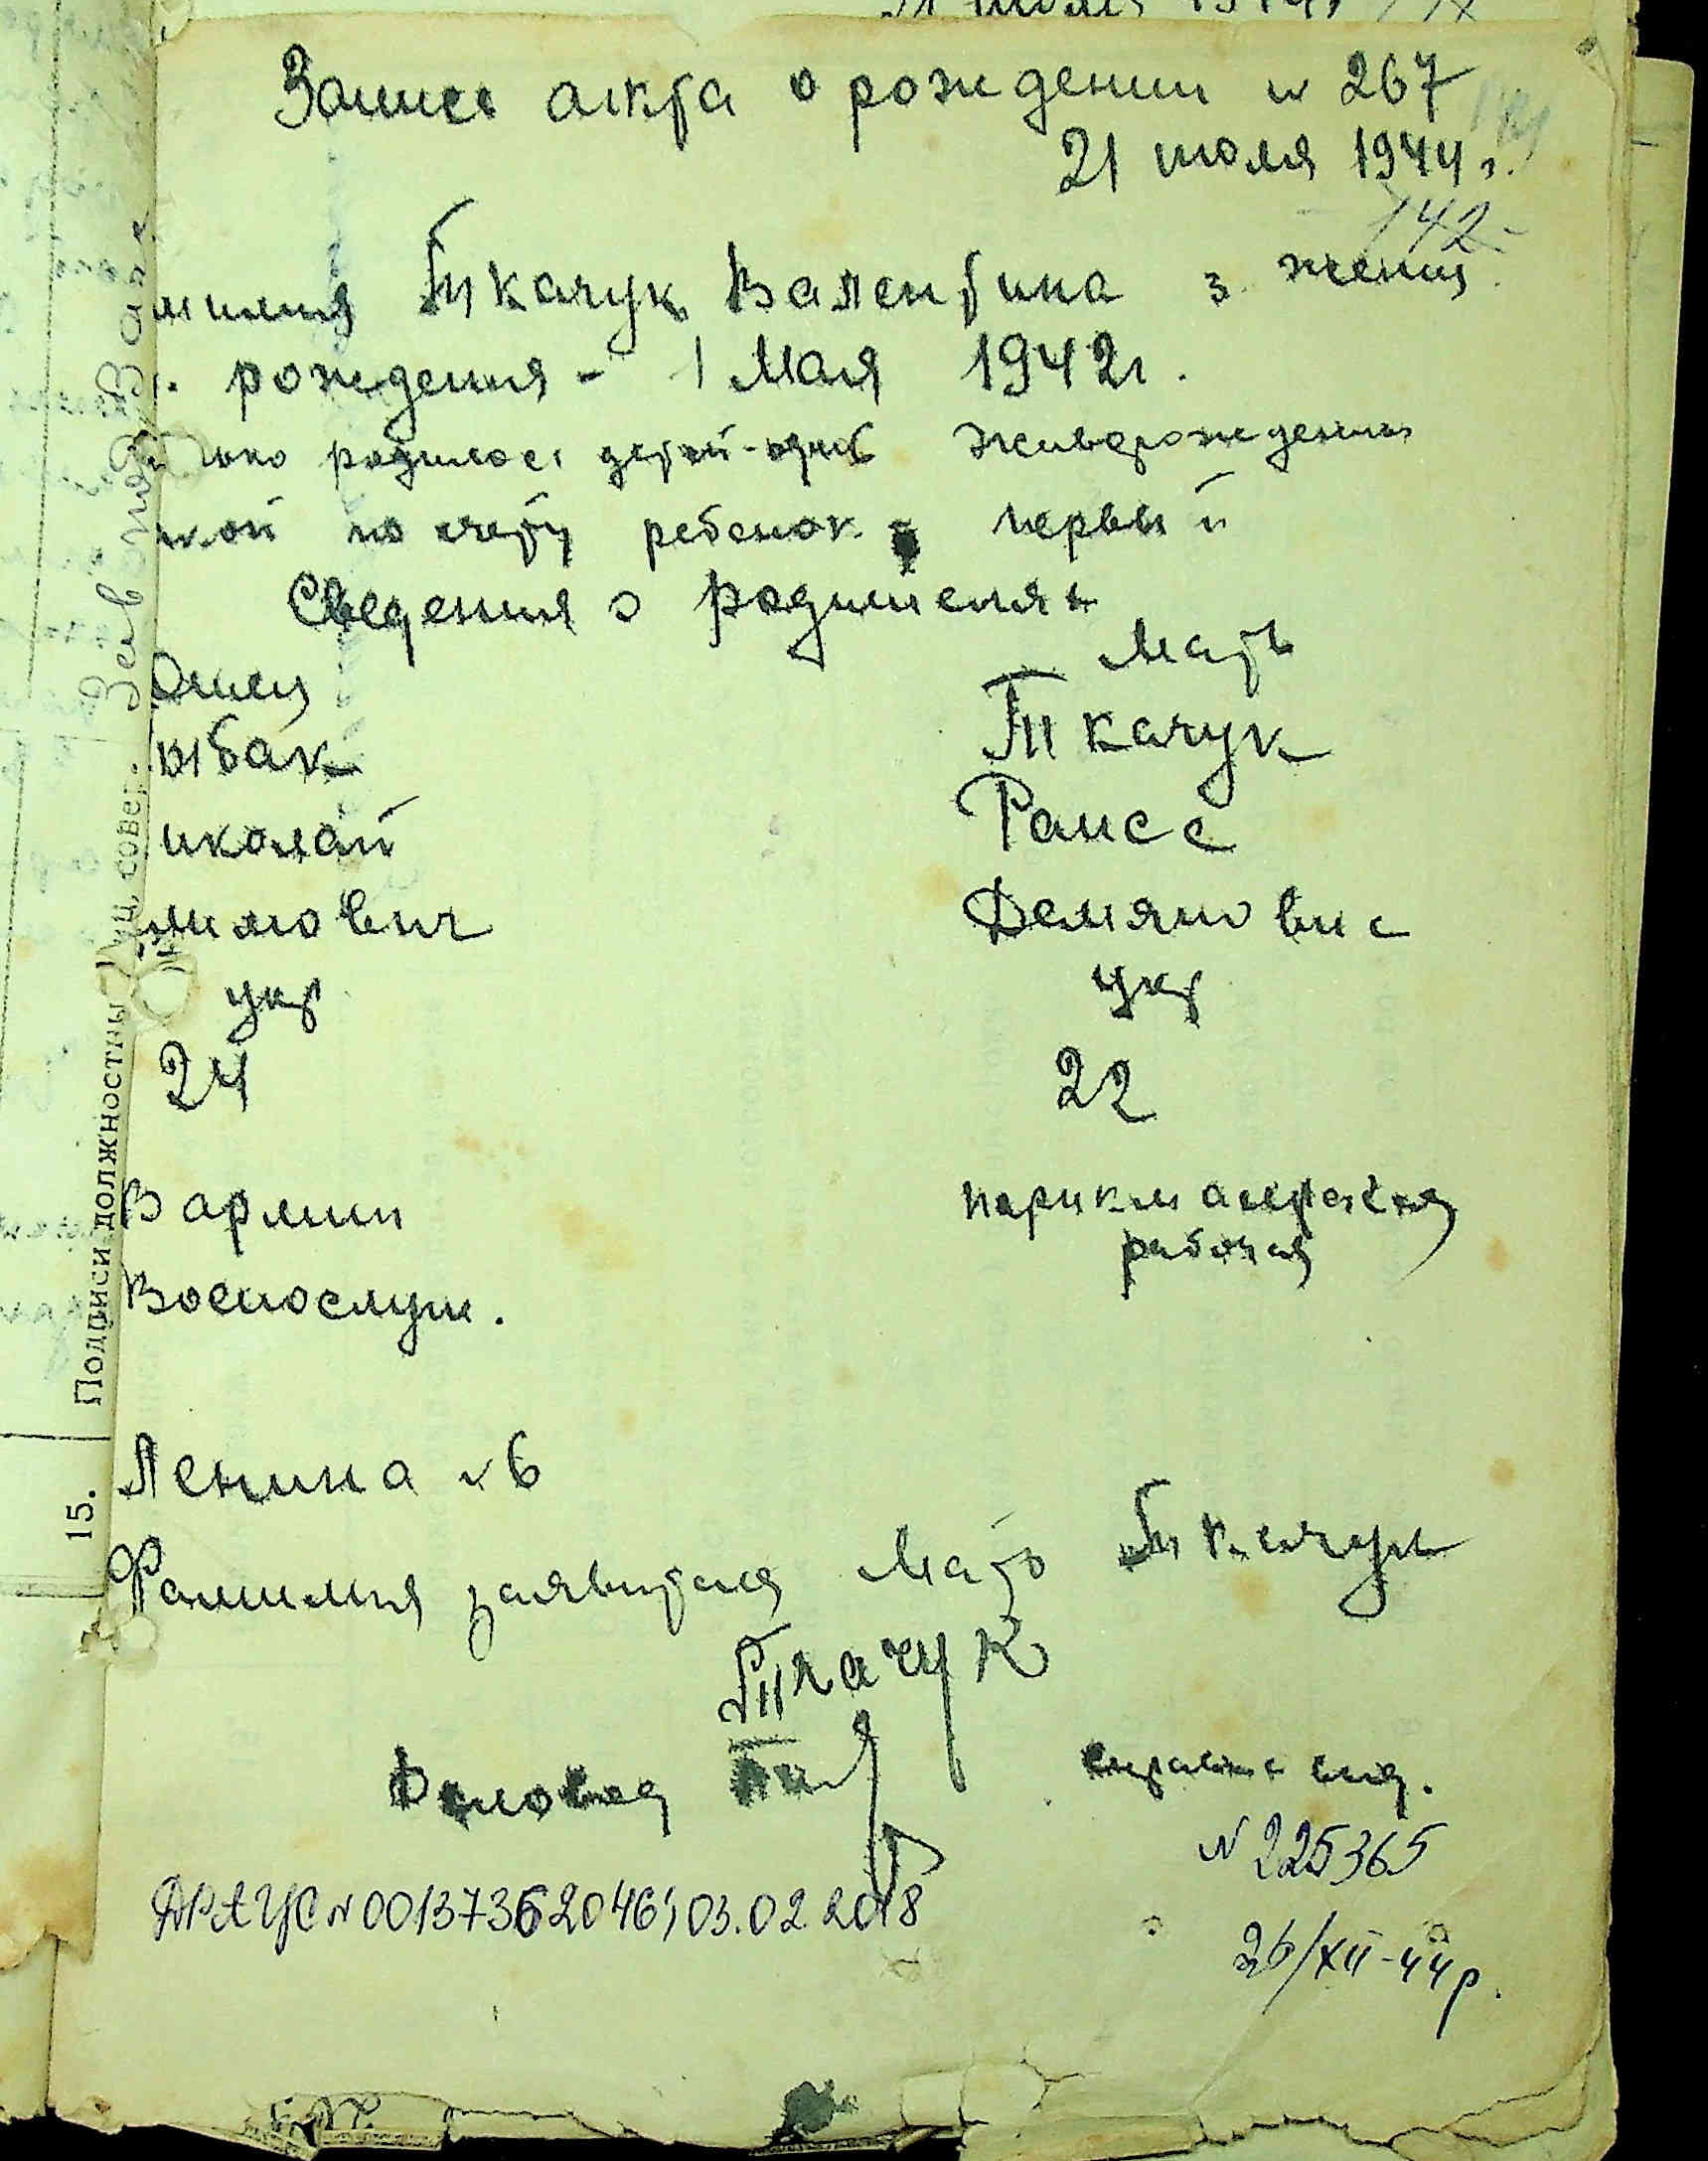 Запис акта о рождении № 267
21 июля 1944 г.
142
милия Ткачук Валентина 3. женщ
. рождения - 1 Мая 1942 г.
родилось детей - одно Живорожденны
кой по счету ребенок - первый
Сведения о родителях
Отец Мать
ыбак Ткачук
иколай Раиса
имович Демяновна
укр укр
24 22
В армии парикмахерская
рабочая
Военослуж.
Ленина № 6
Фамилия заявителя Мать Ткачук
Ткачук
Деловод
справка выд.
№ 225365
ДРАЦС № 00137362046; 03.02.2018
26/XII-44 р.
15. Подписи должностны